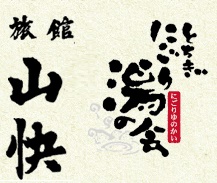 旅館
山快
とちぎ
にごり
湯の会
にごりゆのかい